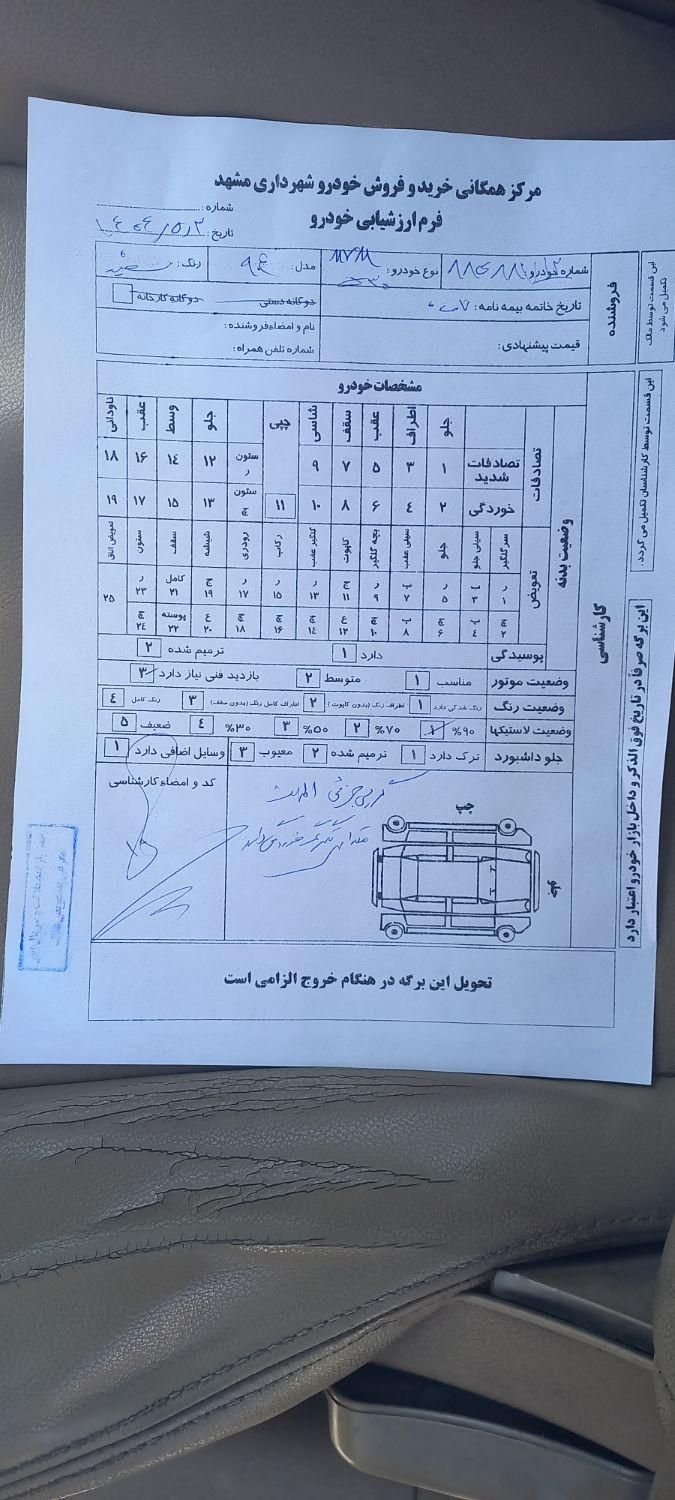 مرکز همگانی خرید و فروش خودرو شهرداری مشهد
فرم ارزشیابی خودرو
شماره:
تاریخ:
این قسمت توسط مالک تکمیل می شود
فروشنده
شماره خودرو: نوع خودرو: MVM مدل: ۹۴ رنگ: سفید
تاریخ خاتمه بیمه نامه: دوگانه دستی دوگانه کارخانه
قیمت پیشنهادی: نام و امضاء فروشنده:
شماره تلفن همراه:
این قسمت توسط کارشناسان تکمیل می گردد.
کارشناسی
مشخصات خودرو
وضعیت بدنه
تصادفات
جلو اطراف عقب سقف شاسی جلو وسط عقب ناودانی
تصادفات شدید ۱ ۳ ۵ ۷ ۹ ستون ر ۱۲ ۱۴ ۱۶ ۱۸
خوردگی ۲ ۴ ۶ ۸ ۱۰ ۱۱ ستون چ ۱۳ ۱۵ ۱۷ ۱۹
تعویض
سر گلگیر سینی جلو جلو سینی عقب بچه گلگیر کاپوت گلگیر عقب رکاب رودری شیشه سقف ستون تعویض اتاق
ر ۱ ج ۳ ر ۵ ۷ ر ۹ ج ۱۱ ر ۱۳ ر ۱۵ ر ۱۷ ج ۱۹ کامل ۲۱ ر ۲۳ ۲۵
چ ۲ ۴ چ ۶ ۸ چ ۱۰ ع ۱۲ چ ۱۴ چ ۱۶ چ ۱۸ ع ۲۰ پوسته ۲۲ چ ۲۴
پوسیدگی دارد ۱ ترمیم شده ۲
وضعیت موتور مناسب ۱ متوسط ۲ بازدید فنی نیاز دارد ۳
وضعیت رنگ رنگ شدگی دارد ۱ اطراف رنگ (بدون کاپوت) ۲ اطراف کامل رنگ (بدون سقف) ۳ رنگ کامل ۴
وضعیت لاستیکها ۹۰% ۱ ۷۰% ۲ ۵۰% ۳ ۳۰% ۴ ضعیف ۵
جلو داشبورد ترک دارد ۱ ترمیم شده ۲ معیوب ۳ وسایل اضافی دارد ۱
کد و امضاء کارشناسی
چپ
تحویل این برگه در هنگام خروج الزامی است
این برگه صرفاً در تاریخ فوق الذکر و داخل بازار خودرو اعتبار دارد